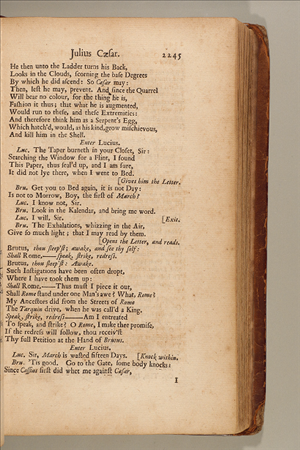 Julius Cæsar. 2245
He then unto the Ladder turns his Back,
Looks in the Clouds, scorning the base Degrees
By which he did ascend: So Cæsar may:
Then, lest he may, prevent. And since the Quarrel
Will bear no colour, for the thing he is,
Fashion it thus; that what he is augmented,
Would run to these, and these Extremities:
And therefore think him as a Serpent's Egg,
Which hatch'd, would, as his kind, grow mischievous,
And kill him in the Shell.
Enter Lucius.
Luc. The Taper burneth in your Closet, Sir:
Searching the Window for a Flint, I found
This Paper, thus seal'd up, and I am sure,
It did not lye there, when I went to Bed.
[Gives him the Letter.
Bru. Get you to Bed again, it is not Day:
Is not to Morrow, Boy, the first of March?
Luc. I know not, Sir.
Bru. Look in the Kalendar, and bring me word.
Luc. I will, Sir. [Exit.
Bru. The Exhalations, whizzing in the Air,
Give so much light; that I may read by them.
[Opens the Letter, and reads.
Brutus, thou sleep'st; awake, and see thy self:
Shall Rome,——speak, strike, redress.
Brutus, thou sleep'st: Awake.
Such Instigations have been often dropt,
Where I have took them up:
Shall Rome.——Thus must I piece it out,
Shall Rome stand under one Man's awe? What, Rome?
My Ancestors did from the Streets of Rome
The Tarquin drive, when he was call'd a King.
Speak, strike, redress——Am I entreated
To speak, and strike? O Rome, I make thee promise,
If the redress will follow, thou receiv'st
Thy full Petition at the Hand of Brutus.
Enter Lucius.
Luc. Sir, March is wasted fifteen Days. [Knock within.
Bru. 'Tis good. Go to the Gate, some body knocks:
Since Cassius first did whet me against Cæsar,
I